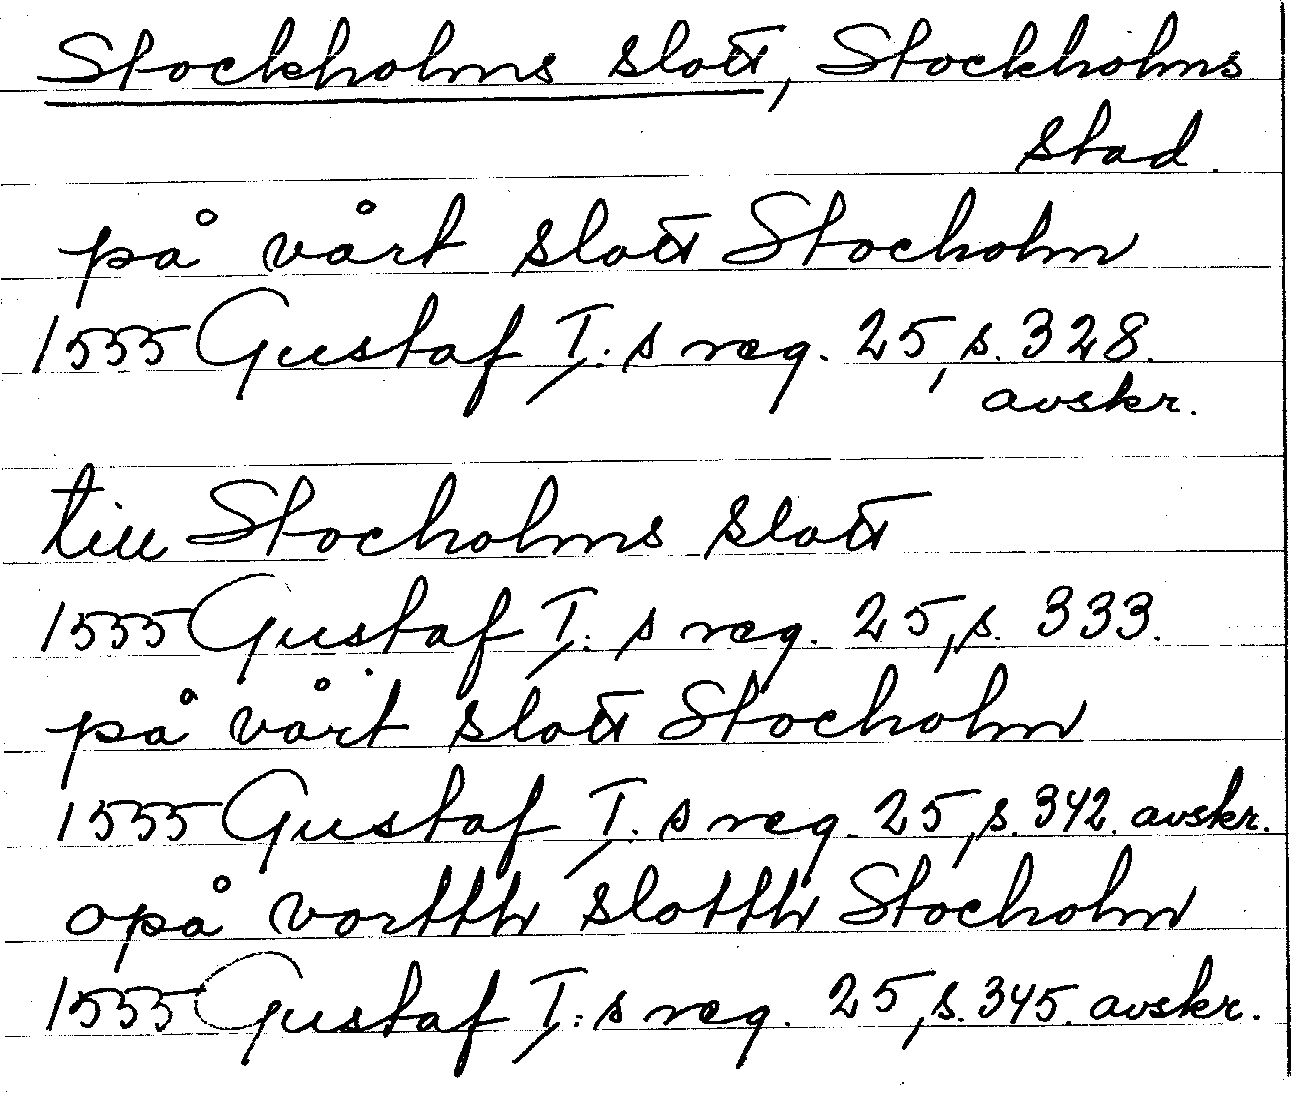 Stockholms slott, Stockholms
stad.
på vårt slott Stocholm
1555 Gustaf I:s reg. 25, s. 328.
avskr.
till Stocholms slott
1555 Gustaf I:s reg. 25, s. 333.
på vårt slott Stocholm
1555 Gustaf I:s reg. 25, s. 342. avskr.
opå vortth slotth Stocholm
1555 Gustaf I:s reg. 25, s. 345. avskr.